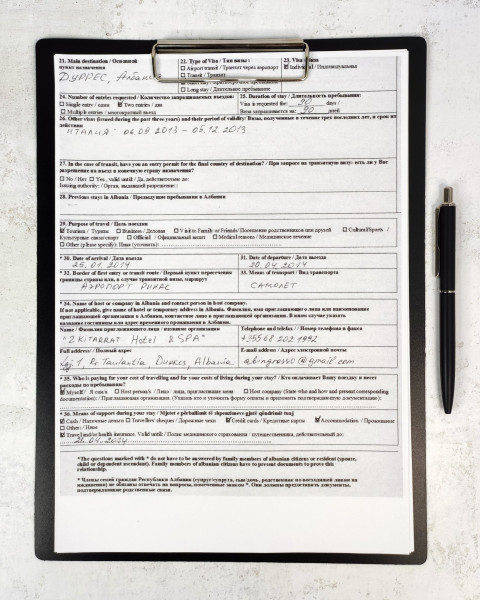 21. Main destination / Основной
пункт назначения
Дуррес, Албан
22. Type of Visa / Тип визы :
Airport transit / Транзит через аэропорт
Transit / Транзит
Long stay / Длительное пребывание
23. Visa
Individual / Индивидуальная
24. Number of entries requested / Количество запрашиваемых въездов:
Single entry / один Two entries / два
Multiple entries / многократный въезд
25. Duration of stay / Длительность пребывания:
Visa is requested for: 90 days /
Виза запрашивается на: 90 дней
26. Other visas (issued during the past three years) and their period of validity / Визы, полученные в течение трех последних лет, и срок их
действия
ИТАЛИЯ: 06.09 2013 - 05.12 2013
27. In the case of transit, have you an entry permit for the final country of destination? / При запросе на транзитную визу: есть ли у Вас
разрешение на въезд в конечную страну назначения?
No / Нет Yes, valid until: / Да, действительно до:
Issuing authority: / Орган, выдавший разрешение:
28. Previous stays in Albania / Предыдущие пребывания в Албании
29. Purpose of travel / Цель поездки
Tourism / Туризм Business / Деловая Visit to Family or Friends / Посещение родственников или друзей Cultural/Sports /
Культурные связи/спорт Official / Официальный визит Medical reasons / Медицинское лечение
Other (please specify) / Иная (уточните):
* 30. Date of arrival / Дата въезда
25.01.2014
31. Date of departure / Дата выезда
20.04.2014
* 32. Border of first entry or transit route / Первый пункт пересечения
границы страны или, в случае транзита, маршрут
АЭРОПОРТ РИНАС
* 33. Means of transport / Вид транспорта
САМОЛЕТ
* 34. Name of host or company in Albania and contact person in host company.
If not applicable, give name of hotel or temporary address in Albania. Фамилия, имя приглашающего лица или наименование
приглашающей организации в Албании, контактное лицо в приглашающей организации. В ином случае указать
название гостиницы или адрес временного проживания в Албании.
Name / Фамилия приглашающего лица / название организации
"2 KITARRAT Hotel & SPA"
Telephone and telefax / Номер телефона и факса
+35568 202 1992
Full address / Полный адрес
Lgj 1, Rr. Taulantia, Durrës, Albania
E-mail address / Адрес электронной почты
abingrosso@gmail.com
* 35. Who is paying for your cost of travelling and for your costs of living during your stay? / Кто оплачивает Вашу поездку и несет
расходы по пребыванию?
Myself / Я сам/а Host person/s / Лицо / лица, пригласившее меня Host company (State who and how and present corresponding
documentation): / Приглашающая организация. (Указать кто и уточнить форму оплаты и приложить подтверждающую документацию):
* 36. Means of support during your stay / Mjetet e përballimit të shpenzimeve gjatë qëndrimit tuaj
Cash / Наличные деньги Travellers' cheques / Дорожные чеки Credit cards / Кредитные карты Accommodation / Проживание
Other: / Иное
Travel and/or health insurance. Valid until: / Полис медицинского страхования - путешественника, действительный до:
*The questions marked with * do not have to be answered by family members of albanian citizens or resident (spouse,
child or dependent ascendant). Family members of albanian citizens have to present documents to prove this
relationship.
* Члены семей граждан Республики Албании (супруг/супруга, сын/дочь, родственник по восходящей линии на
иждивении) не обязаны отвечать на вопросы, помеченные знаком *. Они должны предоставить документы,
подтверждающие родственные связи.